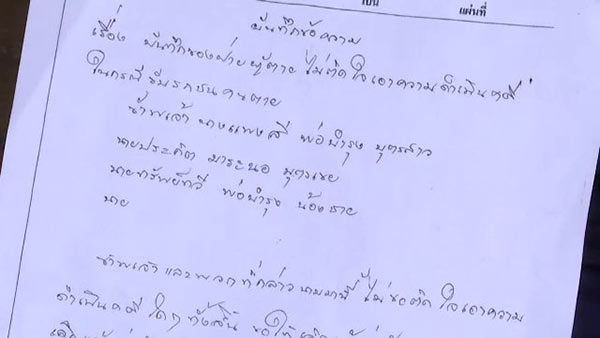 เป็น แผ่นที่
บันทึกข้อความ
เรื่อง บันทึกของฝ่ายผู้ตาย ไม่ติดใจเอาความดำเนินคดี
ในกรณีขับรถชนคนตาย
ข้าพเจ้า นางแพงศรี พ่อบำรุง บุตรสาว
นายประคิต มาระนอ บุตรเขย
นายทรัพย์ทวี พ่อบำรุง น้องชาย
นาย
ข้าพเจ้าและพวกที่กล่าวนามมานี้ ไม่ขอติดใจเอาความ
ดำเนินคดีใดๆ ทั้งสิ้น ขอให้